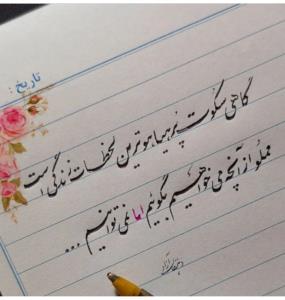 تاریخ :
گاهی سکوت پر هیاهوترین لحظات زندگی است
مملو از آنچه می‌خواهیم بگوئیم اما نمی‌توانیم ...